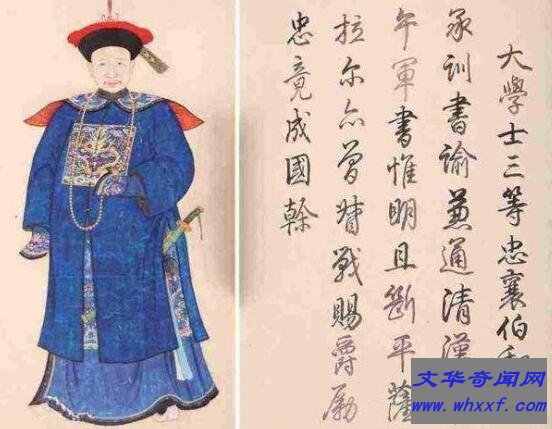 大學士三等忠襄伯和
承訓書諭兼通清漢
午軍書惟明且斷平薩
拉尔亦曾督戰賜爵勵
忠竟成國幹
文华奇闻网
www.whxxf.com